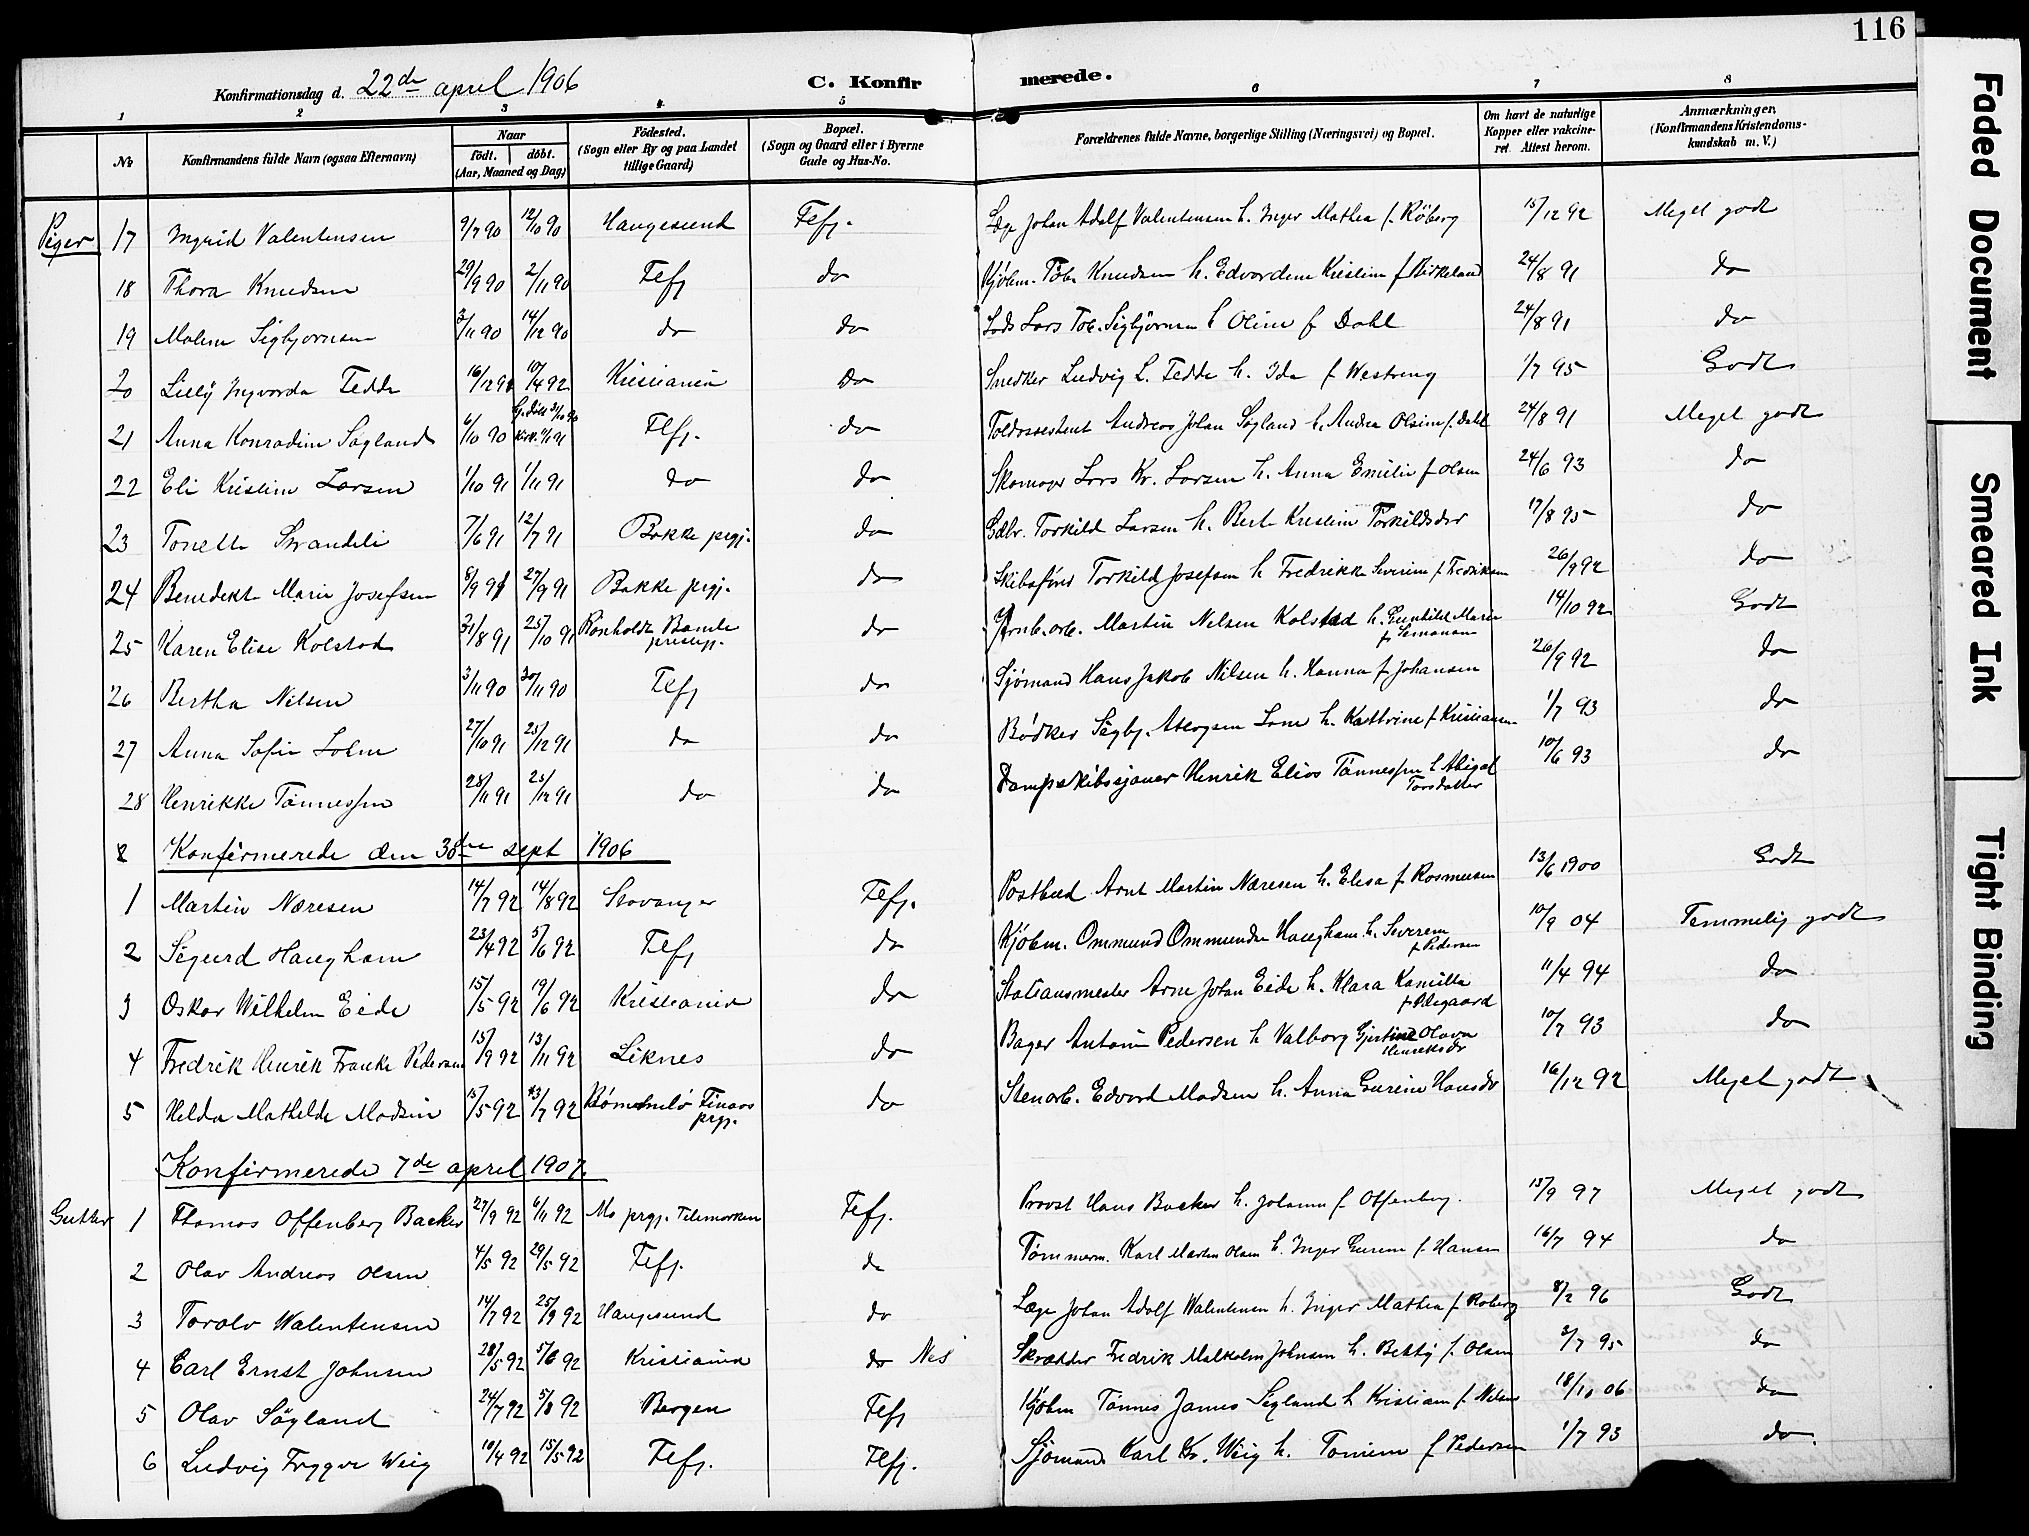 116
Konfirmationsdag d. 22de april 1906
C. Konfirmerede.
1 2 3 4 5 6 7 8
No
Konfirmandens fulde Navn (ogsaa Efternavn)
Naar
födt. döbt.
(Aar, Maaned og Dag)
Födested.
(Sogn eller By og paa Landet
tillige Gaard)
Bopæl.
(Sogn og Gaard eller i Byerne
Gade og Hus-No.
Forældrenes fulde Navne, borgerlige Stilling (Næringsvei) og Bopæl.
Om havt de naturlige
Kopper eller vakcine-
ret Attest herom.
Anmærkninger,
(Konfirmandens Kristendoms-
kundskab m. V.)
Piger 17 Ingrid Valentensen 9/7 90 12/10 90 Haugesund Flfj. Læge Johan Adolf Valentensen h. Inger Mathea f. Röberg 15/12 92 Meget godt
18 Thora Knudsen 29/9 90 2/11 90 Flfj do Kjöbm. Tob. Knudsen h. Edvardine Kristine f Birkeland 24/8 91 do
19 Malene Sigbjornsen 3/11 90 14/12 90 do do Lods Lars Tob. Sigbjörnsen h Oline f Dahl 24/8 91 do
20 Lilly Ingvarda Tedde 16/12 91 10/4 92 Kristiania Do Snedker Ludvig L. Tedde h. Ida f Westreng 1/7 95 Godt
21 Anna Konradine Søgland 6/10 90 Hj. döbt 31/10 90 kirk. 1/1 91 Flfj. do Toldassistent Andreas Johan Søgland h. Andrea Olsine f. Dahl 24/8 91 Meget godt
22 Eli Kristine Larsen 1/10 91 1/11 91 do do Skomager Lars Kr. Larsen h. Anna Emilie f Olsen 24/6 93 do
23 Tonette Strandeli 7/6 91 12/7 91 Bakke prgj. do Gdbr. Torkild Larsen h. Berte Kristine Torkildsdr 17/8 95 do
24 Benedikte Marie Josefsen 8/9 91 27/9 91 Bakke prgj. do Skibsfører Torkild Josefsen h Fredrikke Severine f. Fredriksen 26/9 92 do
25 Karen Elise Kolstad 31/8 91 25/10 91 Rönholdt Bamle prestegj. do Jernb.arb. Martin Nilsen Kolstad h. Gunhild Marie f Simonsen 14/10 92 Godt
26 Bertha Nilsen 3/11 90 30/11 90 Flfj do Sjömand Hans Jakob Nilsen h. Hanna f Johansen 26/9 92 do
27 Anna Sofie Loene 27/10 91 25/12 91 do do Bødker Sigbj. Atlogsen Lone h. Kathrine f Kristiansen 1/7 93 do
28 Henrikke Tönnessen 28/11 91 25/12 91 do do Dampskibssjauer Henrik Elias Tönnessen h Abigael Torsdatter 10/6 93 do
Konfirmerede den 30te sept 1906
1 Martin Næresen 14/7 92 14/8 92 Stavanger Flfj. Postbud Arnt Martin Næresen h. Elisa f Rasmussen 13/6 1900 Godt
2 Sigurd Haugham 23/4 92 5/6 92 Flfj do Kjöbm. Ommund Ommundsen Haugham h. Severine f Pedersen 10/9 04 Temmelig godt
3 Oskar Wilhelm Eide 15/5 92 19/6 92 Kristiania do Stationsmester Arne Johan Eide h. Klara Kamilla f Ølsgaard 11/4 94 do
4 Fredrik Henrik Franke Pedersen 15/9 92 13/11 92 Liknes do Bager Anton Pedersen h Valborg Gjertine Olava Henriksdr 10/7 93 do
5 Helda Mathilde Madsen 15/5 92 13/7 92 Bömmelö Finaas prgj. do Stenarb. Edvard Madsen h. Anna Gurine Hansdr 16/12 92 Meget godt
Konfirmerede 7de april 1907.
Gutter 1 Thomas Offenberg Backer 27/9 92 6/11 92 Mo prgj. Telemarken Flfj. Provst Hans Backer h. Johanne f. Offenberg. 15/9 97 Meget godt
2 Olav Andreas Olsen 4/5 92 29/5 92 Flfj. do Tømmerm. Karl Martin Olsen h. Inger Gurine f. Hansen 16/7 94 do
3 Toralv Walentensen 14/7 92 25/9 92 Haugesund do Læge Johan Adolf Walentensen h. Inger Mathea f Roberg 8/2 96 Godt
4 Carl Ernst Johnsen 28/5 92 5/6 92 Kristiania do Nes Skrædder Fredrik Malkolm Johnsen h. Betty f. Olsen 3/7 95 do
5 Olav Søgland 24/7 92 5/8 92 Bergen Flfj Kjöbm Tönnes James Søgland h Kristiane f. Nilsen 18/10 06 do
6 Ludvig Trygve Weig 10/4 92 15/5 92 Flfj. Flfj. Sjømand Karl Kr. Weig h. Tomine f Pedersen 1/7 93 do.
Faded Document
Smeared Ink
Tight Binding